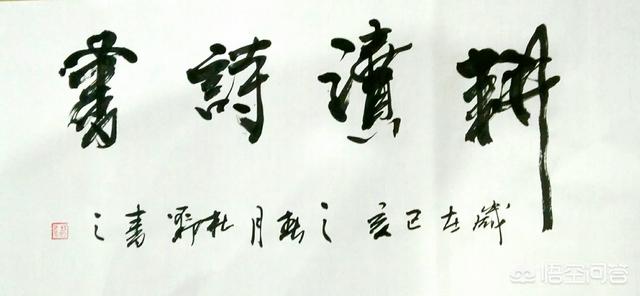 耕讀詩書
歲在己亥之秋月杜書之
悟空问答